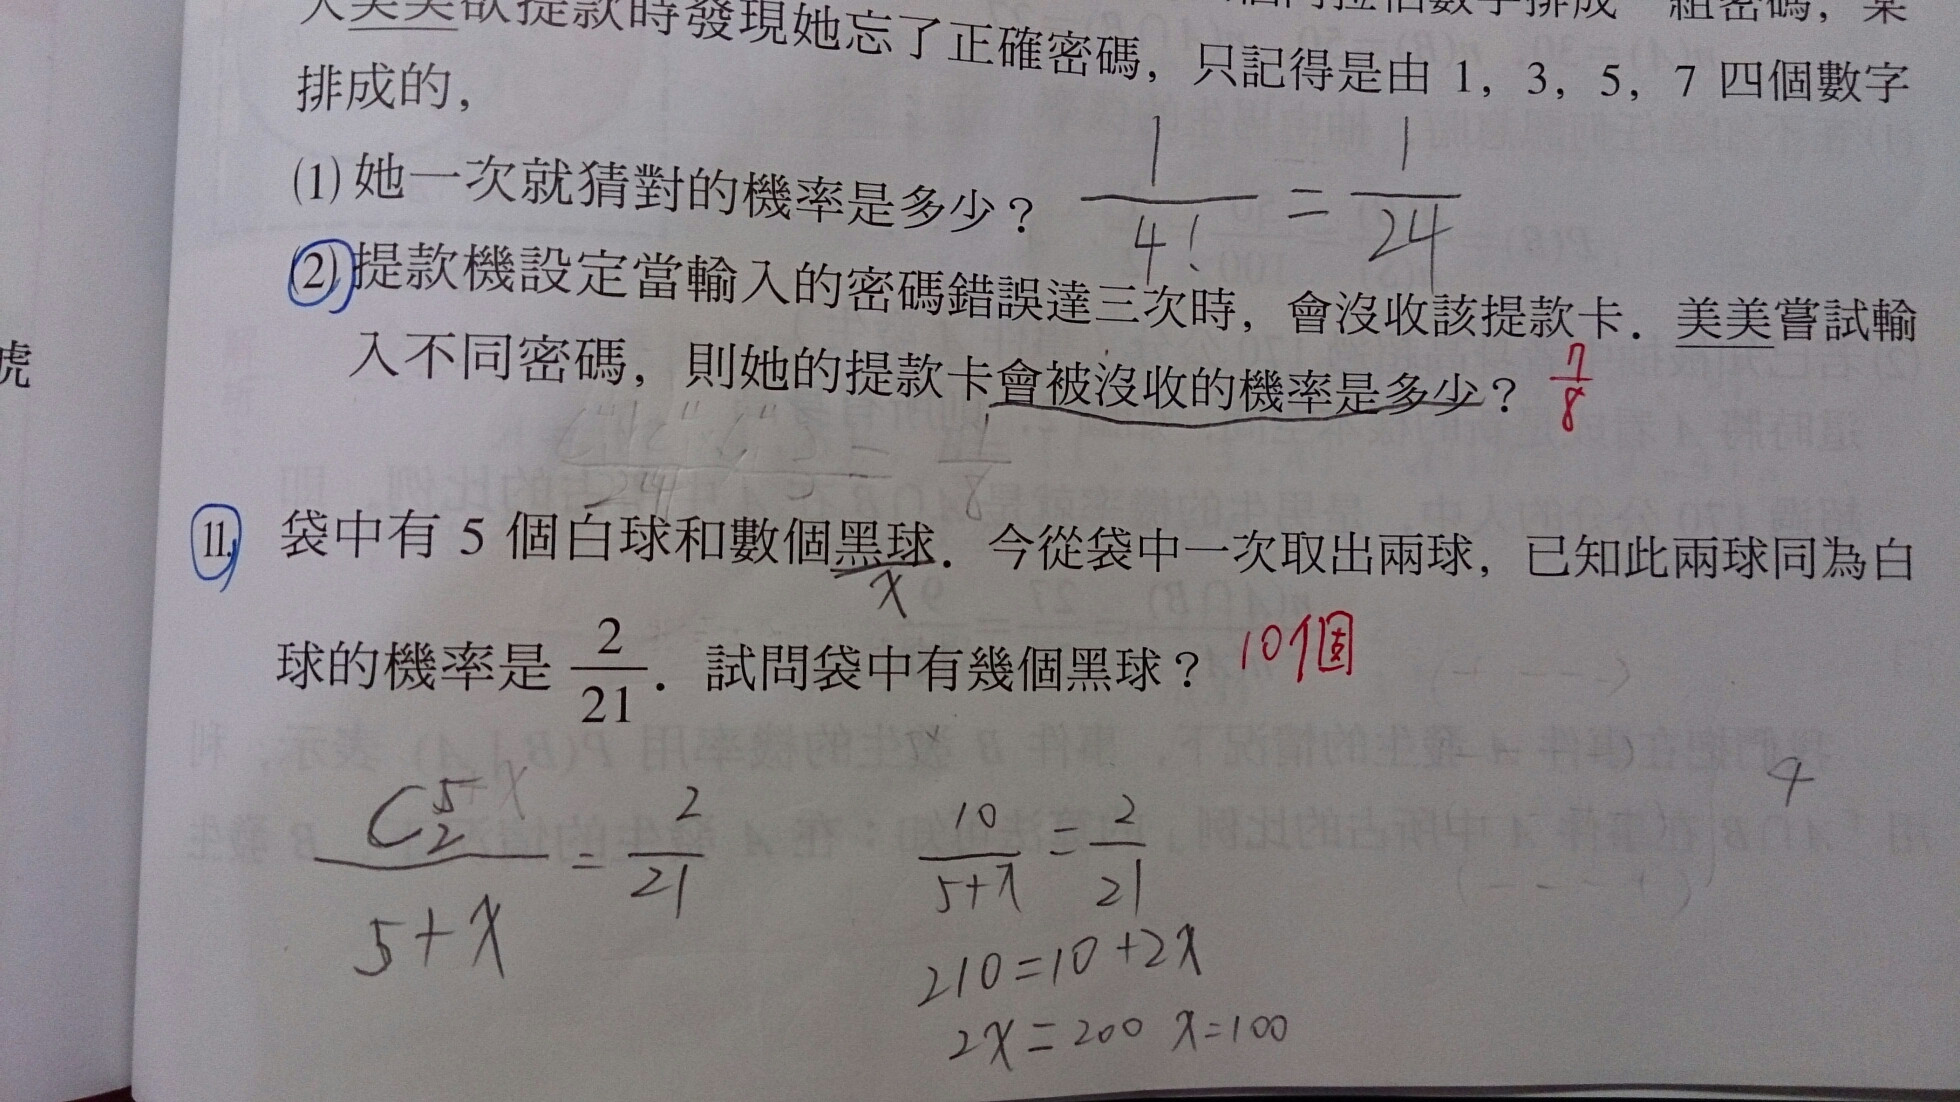 人美美欲提款時發現她忘了正確密碼，只記得是由 1，3，5，7 四個數字
排成的，
(1) 她一次就猜對的機率是多少？ 1/4! = 1/24
(2) 提款機設定當輸入的密碼錯誤達三次時，會沒收該提款卡．美美嘗試輸
入不同密碼，則她的提款卡會被沒收的機率是多少？ 7/8
11. 袋中有 5 個白球和數個黑球．今從袋中一次取出兩球，已知此兩球同為白
x
球的機率是 2/21．試問袋中有幾個黑球？ 10個
4
C⁵₂/5+x = 2/21
10/5+x = 2/21
210=10+2x
2x=200 x=100
虎